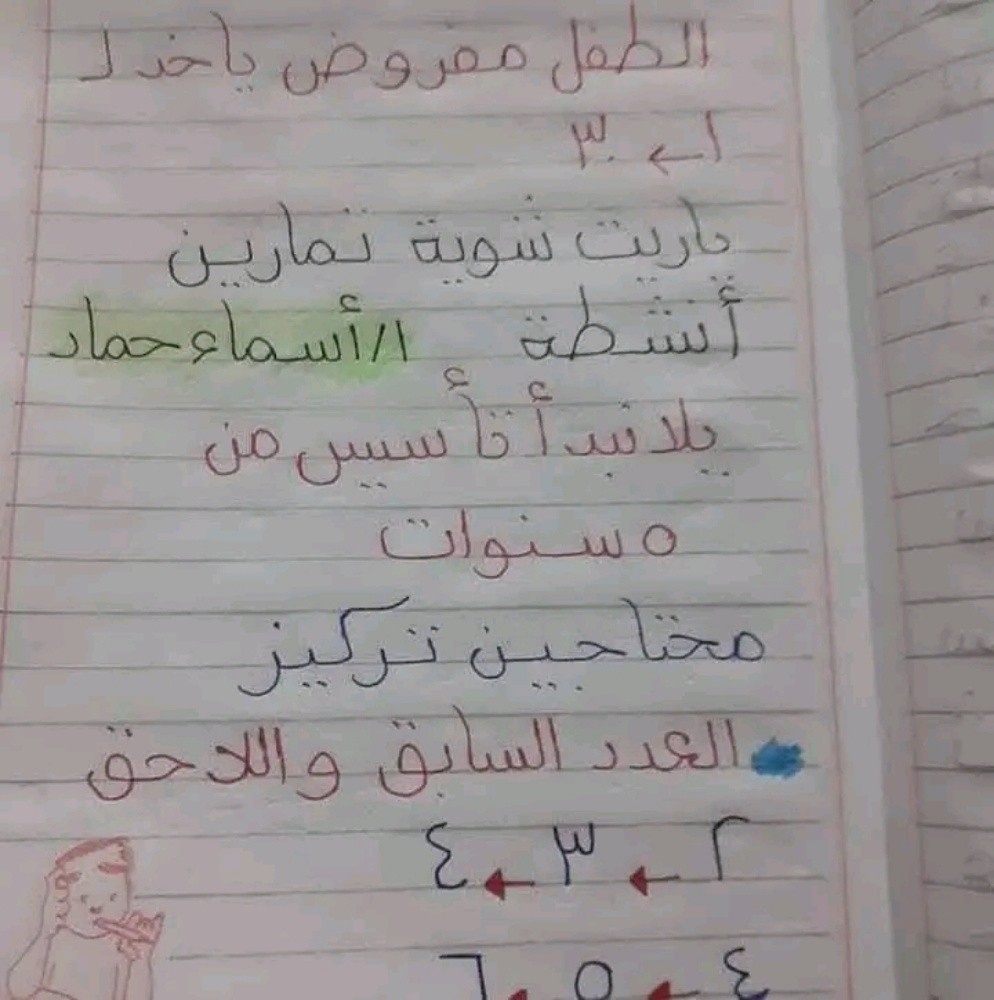 الطفل مفروض ياخد لـ
١ ← ٣٠
ياريت شوية تمارين
أنشطة ا/أسماء حماد
يلا نبدأ تأسيس من
٥ سنوات
محتاجين تركيز
العدد السابق واللاحق
٢ ← ٣ ← ٤
٤ ← ٥ ← ٦